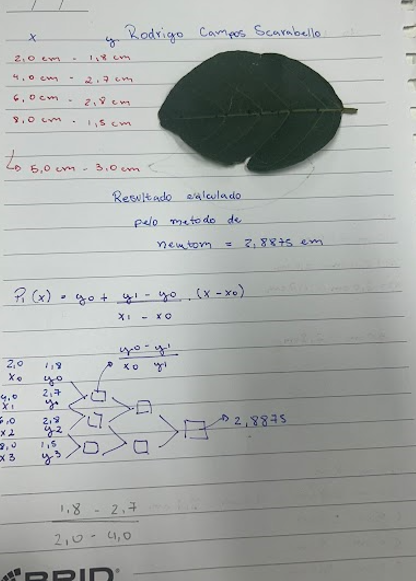 x y Rodrigo Campos Scarabello
2,0 cm - 1,8 cm
4,0 cm - 2,7 cm
6,0 cm - 2,8 cm
8,0 cm - 1,5 cm
↳ 5,0 cm - 3,0 cm
Resultado calculado
pelo metodo de
newtom = 2,8875 cm
P1(x) = y0 + y1 - y0 . (x - x0)
x1 - x0
y0 - y1
x0 y1
2,0 1,8
x0 y0
4,0 2,7
x1 y1
6,0 2,8
x2 y2
→ 2,8875
8,0 1,5
x3 y3
1,8 - 2,7
2,0 - 4,0